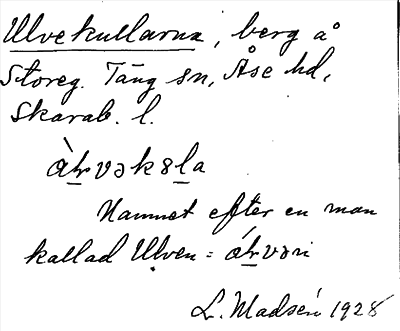 Ulvekullarna, berg å
Storeg. Täng sn, Åse hd,
Skarab. l.
Namnet efter en man
kallad Ulven =
L. Madsén 1928